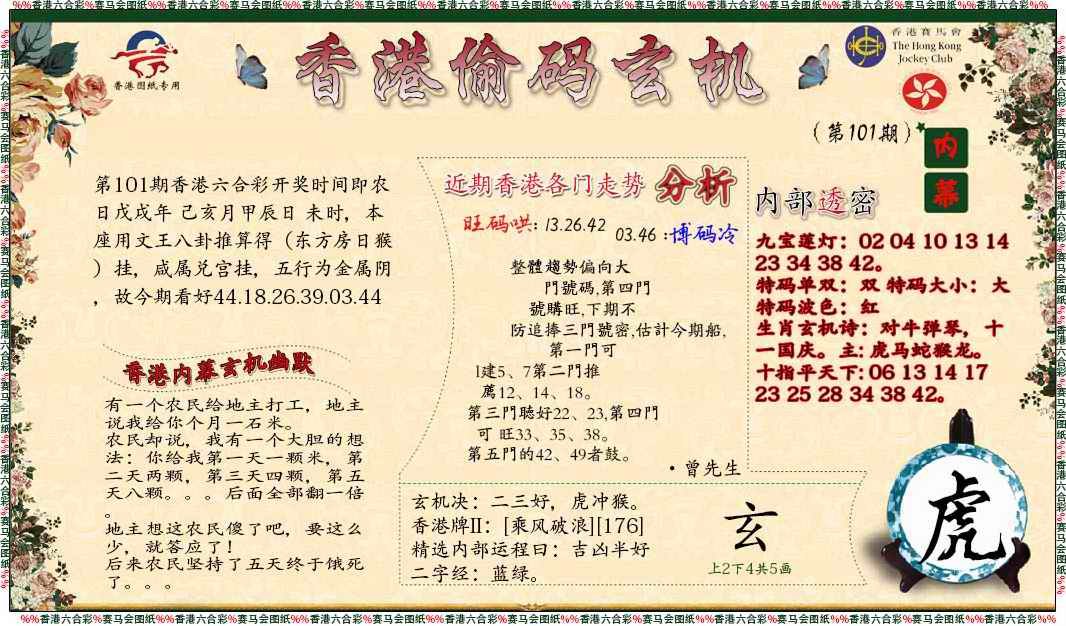 %%香港六合彩%赛马会图纸%%香港六合彩%赛马会图纸%%香港六合彩%赛马会图纸%%香港六合彩%赛马会图纸%%香港六合彩%赛马会图纸%%香港六合彩%赛马会图纸%%香港六合彩%%
香港图纸专用
香港偷码玄机
香港賽馬會
The Hong Kong
Jockey Club
（第101期）
内
幕
第101期香港六合彩开奖时间即农
日戊戌年 己亥月甲辰日 未时，本
座用文王八卦推算得（东方房日猴
）挂，咸属兑宫挂，五行为金属阴
，故今期看好44.18.26.39.03.44
香港内幕玄机幽默
有一个农民给地主打工，地主
说我给你个月一石米。
农民却说，我有一个大胆的想
法：你给我第一天一颗米，第
二天两颗，第三天四颗，第五
天八颗。。。后面全部翻一倍
。
地主想这农民傻了吧，要这么
少，就答应了！
后来农民坚持了五天终于饿死
了。。。
近期香港各门走势 分析
旺码哄: 13.26.42
03.46 :博码冷
整體趨勢偏向大
門號碼,第四門
號購旺,下期不
防追捧三門號密,估計今期船,
第一門可
1建5、7第二門推
薦12、14、18。
第三門聴好22、23,第四門
可 旺33、35、38。
第五門的42、49者鼓。
·曾先生
玄机决：二三好，虎冲猴。
香港牌II：[乘风破浪][176]
精选内部运程曰：吉凶半好
二字经：蓝绿。
玄
上2下4共5画
内部透密
九宝莲灯：02 04 10 13 14
23 34 38 42。
特码单双：双 特码大小：大
特码波色：红
生肖玄机诗：对牛弹琴，十
一国庆。主: 虎马蛇猴龙。
十指平天下: 06 13 14 17
23 25 28 34 38 42。
虎
%%香港六合彩%赛马会图纸%%香港六合彩%赛马会图纸%%香港六合彩%赛马会图纸%%香港六合彩%赛马会图纸%%香港六合彩%赛马会图纸%%香港六合彩%赛马会图纸%%香港六合彩%%